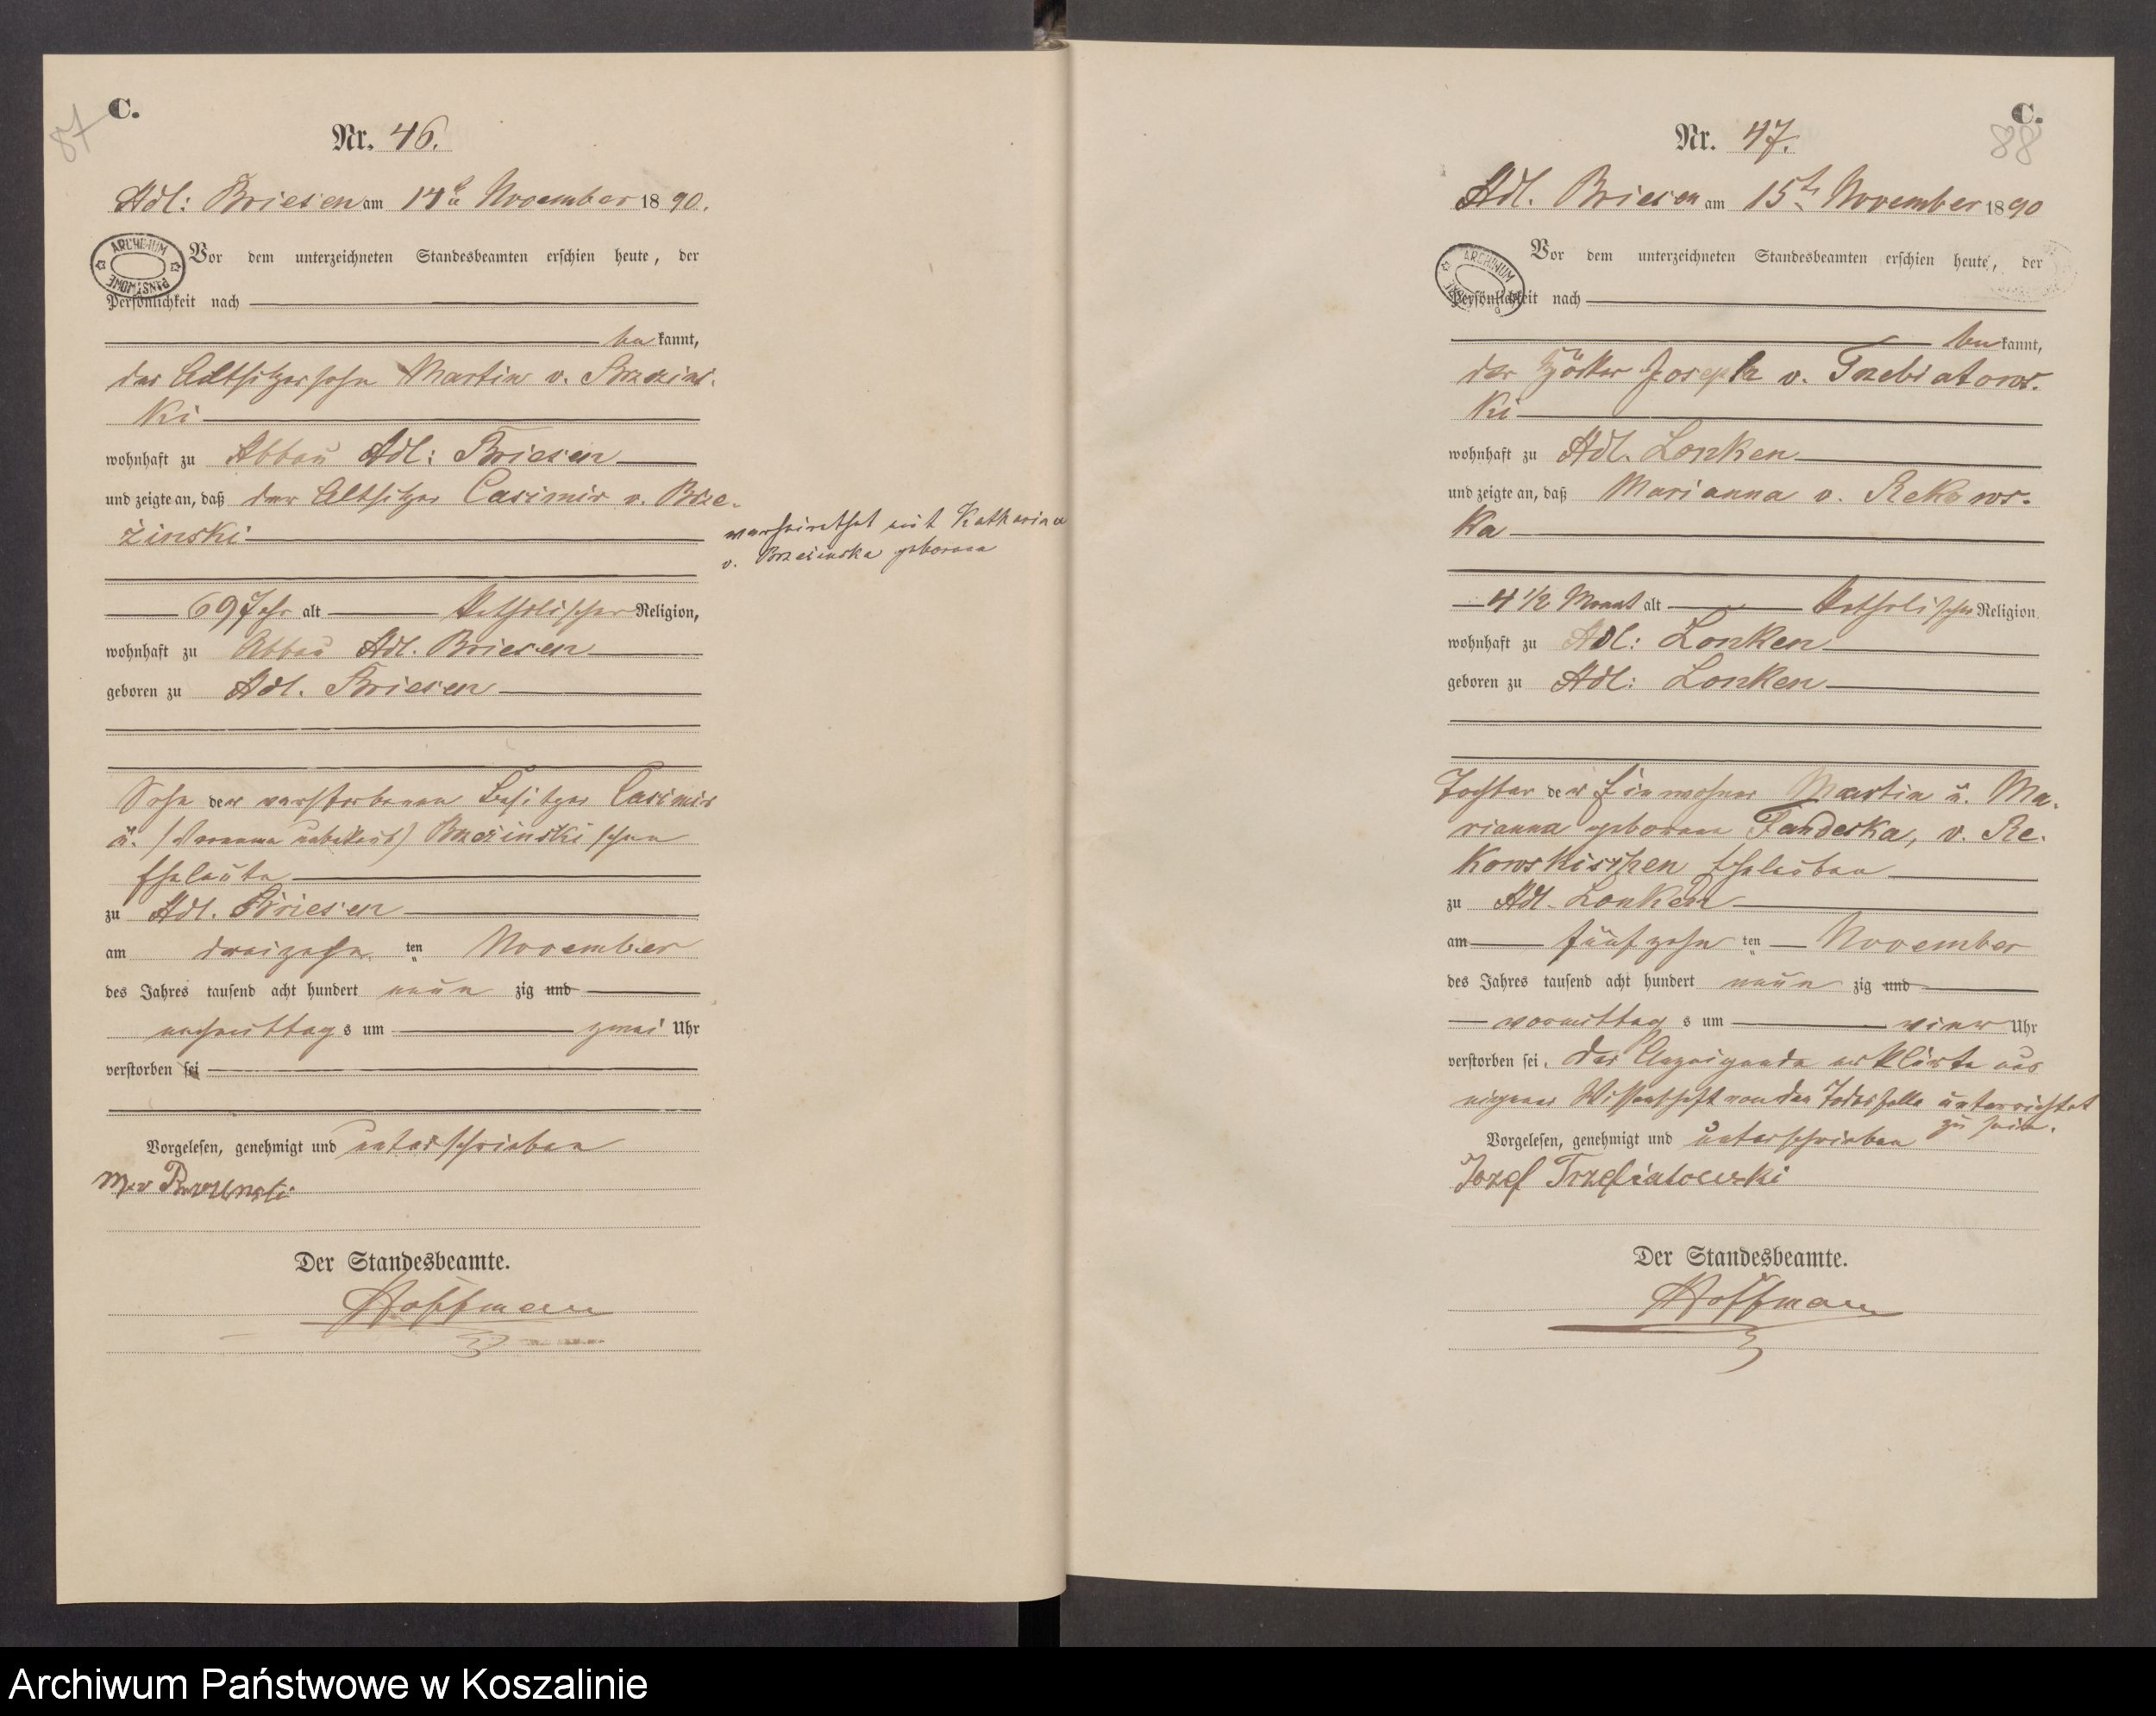 87
C.
Nr. 46.
Adl: Briesen am 14t November 1890.
ARCHIWUM PAŃSTWOWE
Vor dem unterzeichneten Standesbeamten erschien heute, der
Persönlichkeit nach
be kannt,
der Altsitzersohn Martin v. Brzezins-
ki
wohnhaft zu Abbau Adl: Briesen
und zeigte an, daß der Altsitzer Casimir v. Brze-
zinski
verheirathet mit Katharina
v. Brzezinska geborene
69 Jahr alt Katholischer Religion,
wohnhaft zu Abbau Adl. Briesen
geboren zu Adl. Briesen
Sohn der verstorbenen Besitzer Casimir
u. (Vorname unbekannt) Brzezinskischen
Eheleute
zu Adl. Briesen
am dreizehn ten November
des Jahres tausend acht hundert neun zig und
nachmittag s um zwei Uhr
verstorben sei
Vorgelesen, genehmigt und unterschrieben
M. v
Der Standesbeamte.
Hoffmann
C.
88
Nr. 47.
Adl. Briesen am 15t November 1890
ARCHIWUM
Vor dem unterzeichneten Standesbeamten erschien heute, der
Persönlichkeit nach
be kannt,
der Joseph v. Trzebiatows-
ki
wohnhaft zu Adl. Lonken
und zeigte an, daß Marianna v. Rekows-
ka
4 1/2 Monat alt Katholischer Religion
wohnhaft zu Adl: Lonken
geboren zu Adl: Lonken
Tochter der Einwohner Martin u. Ma-
rianna geborene v. Re-
kowskischen Eheleuten
zu Adl. Lonken
am fünfzehn ten November
des Jahres tausend acht hundert neun zig und
vormittag s um vier Uhr
verstorben sei. Der Anzeigende erklärte aus
eigener Wissenschaft von dem Todesfalle unterrichtet
zu sein.
Vorgelesen, genehmigt und unterschrieben
Jozef Trzebiatowski
Der Standesbeamte.
Hoffmann
Archiwum Państwowe w Koszalinie